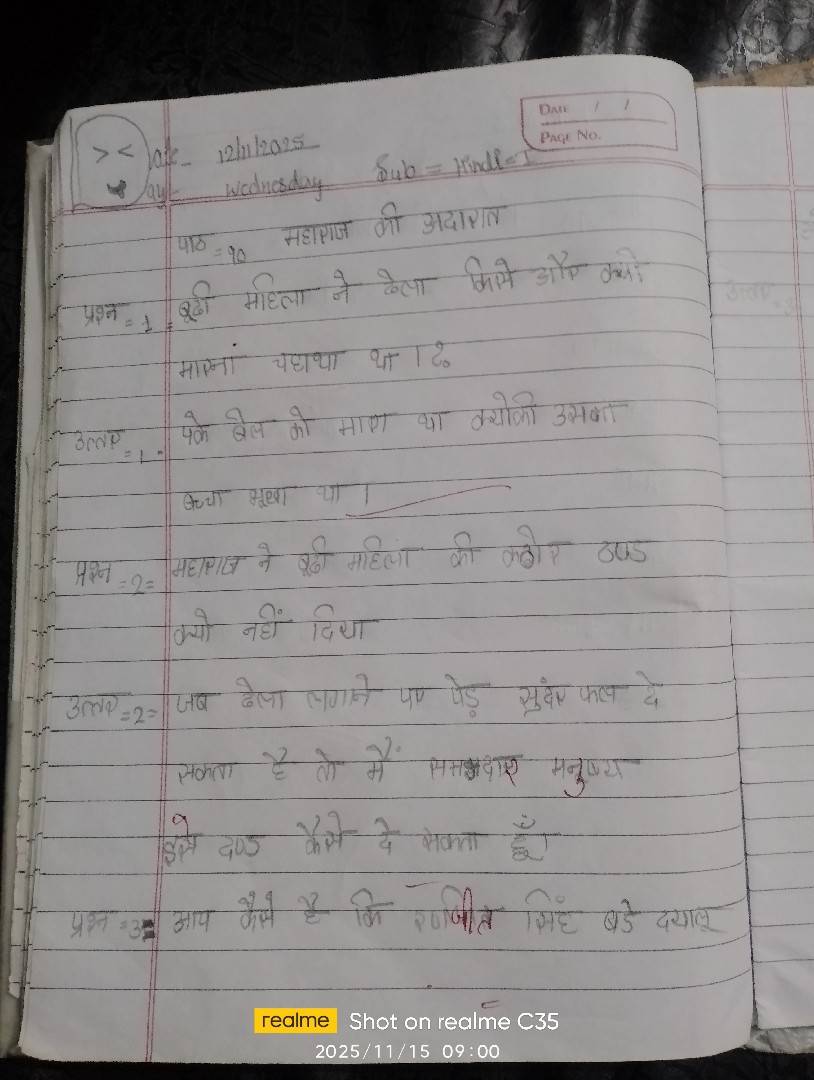 DATE / /
PAGE NO.
Date- 12/11/2025
Day- Wednesday Sub = Hindi = I
पाठ = १० महाराज की अदारात
प्रश्न = 1 = बूढी महिला ने ढेला किसे और क्यो
मारनां चहाथा था । ?
उत्तर = 1 - पके बेल को मारा था क्योकी उसका
बच्चा भूखा था ।
प्रश्न = 2 = महाराज ने बूढी महिला की कठोर ठण्ड
क्यो नहीं दिया
उत्तर = 2 = जब ढेला लगाने पर पेड़ सुंदर फल दे
सकता है तो मैं समझदार मनुष्य
इसे दण्ड कैसे दे सकता हूँ।
प्रश्न = 3 = आप कैसे है कि रणजीत सिंह बडे दयालू
realme Shot on realme C35
2025/11/15 09:00